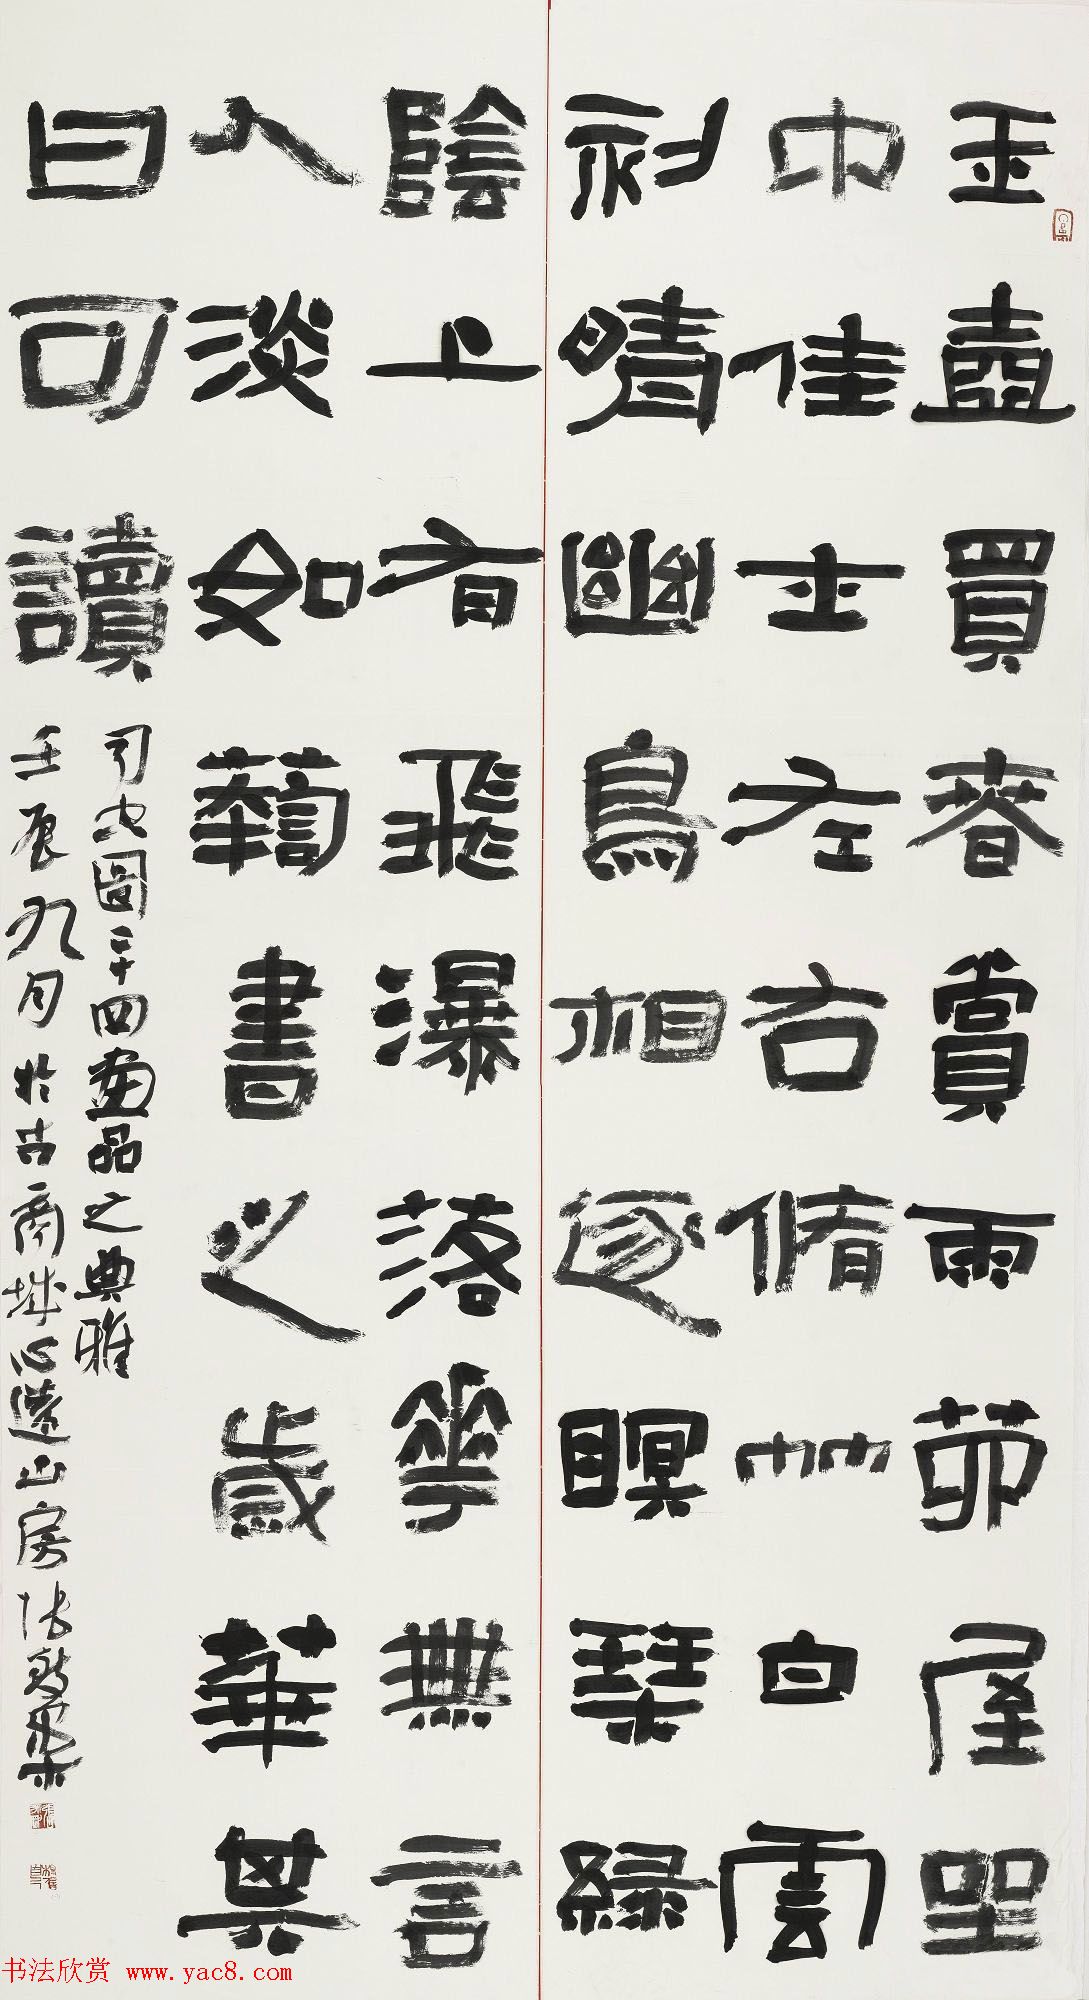 玉壺買春賞雨茆屋坐
中佳士左右脩竹白雲
初晴幽鳥相逐瞑琴綠
陰上有飛瀑落花無言
人淡如菊書之歲華其
曰可讀
司空圖二十四畫品之典雅
壬辰九月於古商城心遠山房張
书法欣赏 www.yac8.com